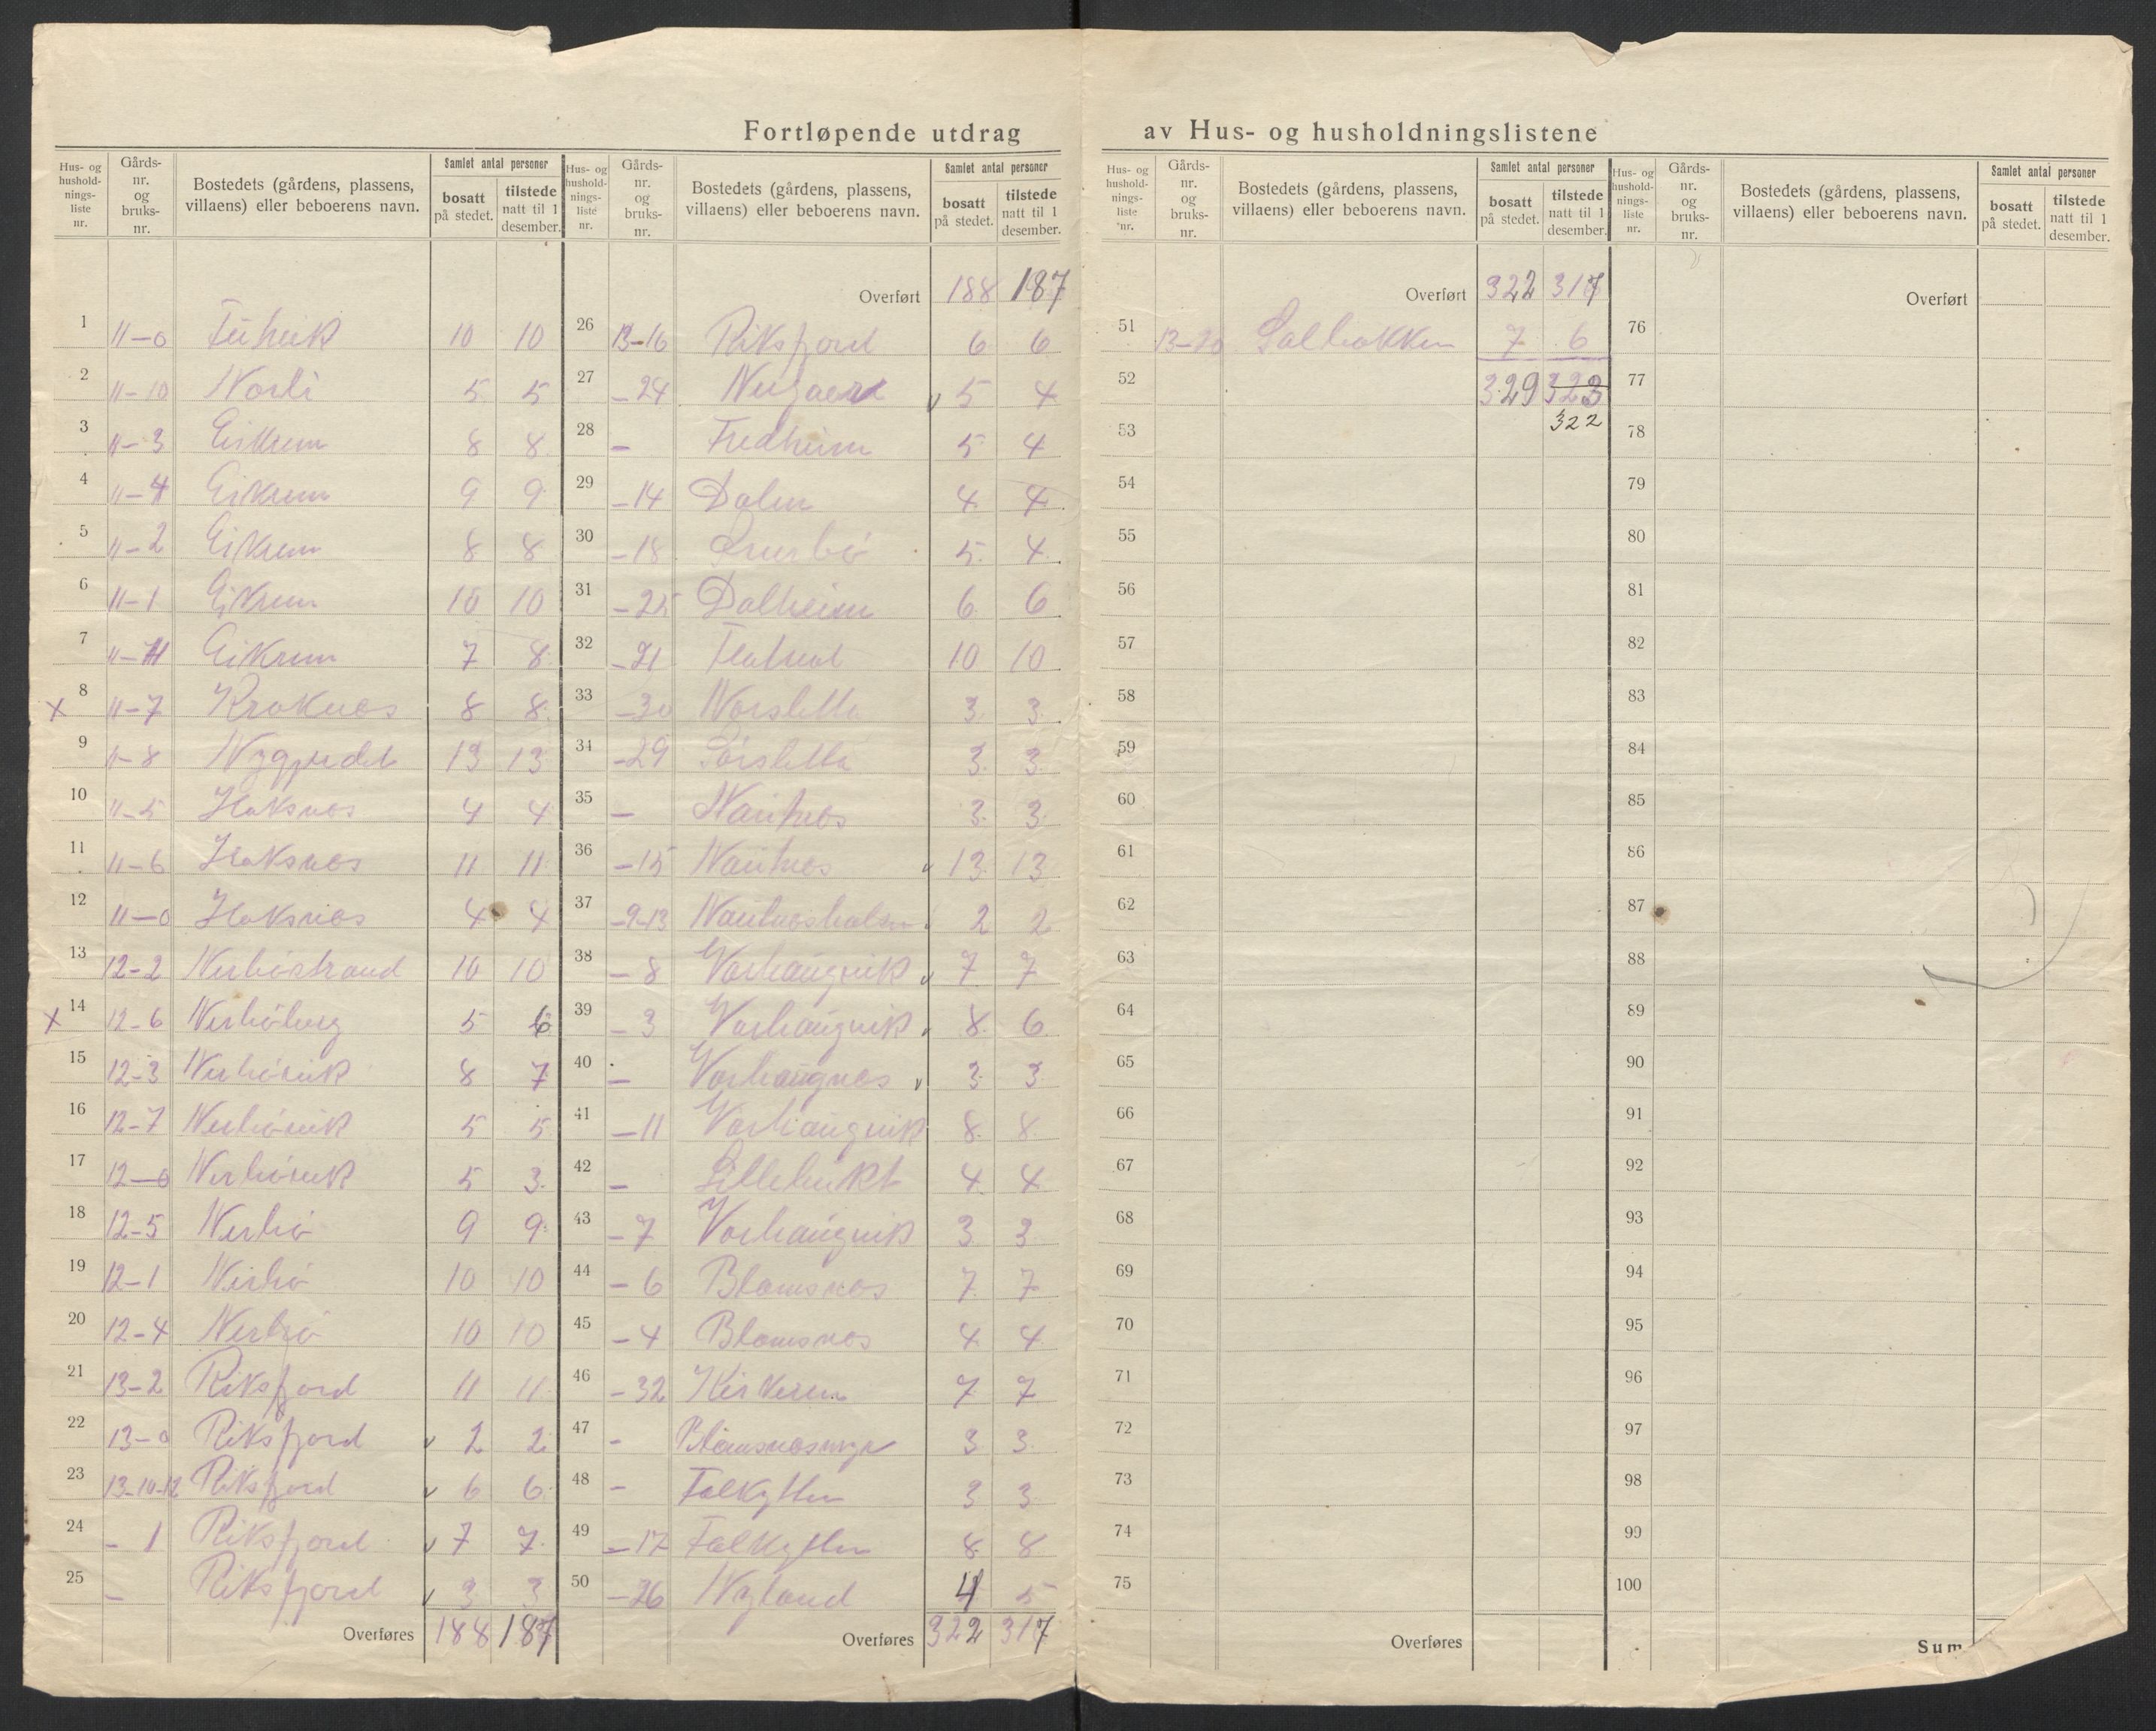 Fortløpende utdrag av Hus- og husholdningslistene
Hus- og husholdnings-liste nr. Gårds-nr. og bruks-nr. Bostedets (gårdens, plassens, villaens) eller beboerens navn. Samlet antal personer bosatt på stedet. tilstede natt til 1 desember.
1 11-0 10 10
2 11-10 Norli 5 5
3 11-3 Eikrem 8 8
4 11-4 Eikrem 9 9
5 11-2 Eikrem 8 8
6 11-1 Eikrem 10 10
7 Eikrem 7 8
x 8 11-7 Kroknes 8 8
9 11-8 Nygjerdet 13 13
10 11-5 Hoksnes 4 4
11 11-6 Hoksnes 11 11
12 11-0 Hoksnes 4 4
13 12-2 Nerböstrand 10 10
x 14 12-6 Nerböberg 5 6
15 12-3 Nerbövik 8 7
16 12-7 Nerbövik 5 5
17 12-0 Nerbövik 5 3
18 12-5 Nerbö 9 9
19 12-1 Nerbö 10 10
20 12-4 Nerbö 10 10
21 13-2 Riksfjord 11 11
22 13-0 Riksfjord v 2 2
23 13-10-12 Riksfjord v 6 6
24 - 1 Riksfjord v 7 7
25 - Riksfjord v 3 3
Overføres 188 187
Hus- og husholdnings-liste nr. Gårds-nr. og bruks-nr. Bostedets (gårdens, plassens, villaens) eller beboerens navn. Samlet antal personer bosatt på stedet. tilstede natt til 1 desember.
Overført 188 187
26 13-16 Riksfjord 6 6
27 -24 Nergaard v 5 4
28 - Fredheim 5 4
29 -14 Dalen 4 4
30 -18 5 4
31 -25 Dalheim 6 6
32 -21 10 10
33 -30 Norsletta 3 3
34 -29 Sörsletta 3 3
35 - Nautnes 3 3
36 -15 Nautnes v 13 13
37 -9-13 Nautnesholmen 2 2
38 -8 Vorhaugvik v 7 7
39 -3 Vorhaugvik v 8 6
40 - Vorhaugnes v 3 3
41 -11 Vorhaugvik 8 8
42 - Lillebukt 4 4
43 -7 Vorhaugvik 3 3
44 -6 Blomsnes 7 7
45 -4 Blomsnes 4 4
46 -32 7 7
47 - Blomsnesmyr 3 3
48 - Falkytten 3 3
49 -17 Falkytten 8 8
50 -26 Nyland 4 5
Overføres 322 317
Hus- og husholdnings-liste nr. Gårds-nr. og bruks-nr. Bostedets (gårdens, plassens, villaens) eller beboerens navn. Samlet antal personer bosatt på stedet. tilstede natt til 1 desember.
Overført 322 317
51 13-20 Solbakken 7 6
52 329 323
53 322
54
55
56
57
58
59
60
61
62
63
64
65
66
67
68
69
70
71
72
73
74
75
Overføres
Hus- og husholdnings-liste nr. Gårds-nr. og bruks-nr. Bostedets (gårdens, plassens, villaens) eller beboerens navn. Samlet antal personer bosatt på stedet. tilstede natt til 1 desember.
Overført
76
77
78
79
80
81
82
83
84
85
86
87
88
89
90
91
92
93
94
95
96
97
98
99
100
Sum